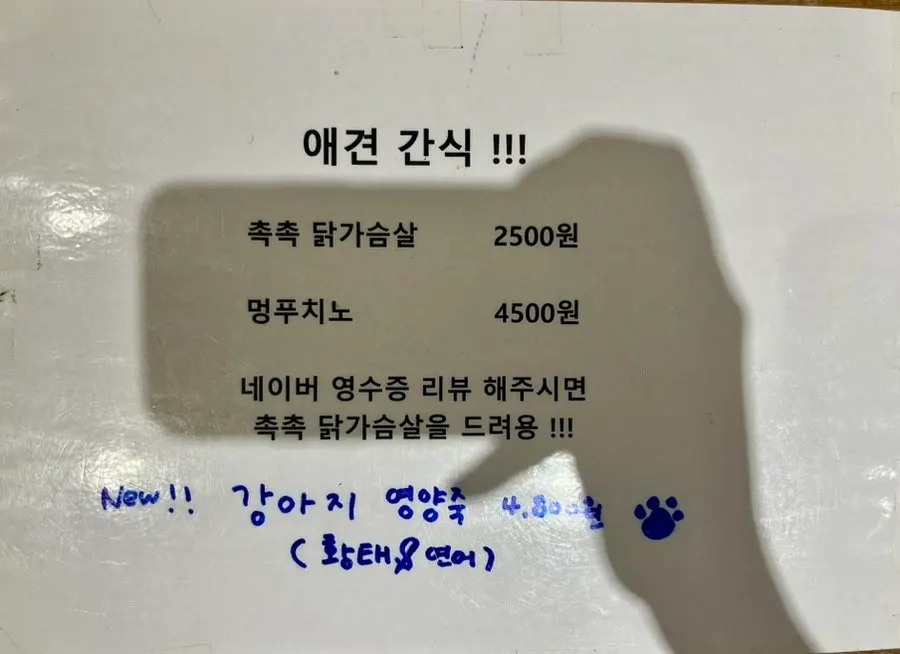 애견 간식 !!!
촉촉 닭가슴살 2500원
멍푸치노 4500원
네이버 영수증 리뷰 해주시면
촉촉 닭가슴살을 드려용 !!!
New!! 강아지 영양죽 4.800원
(황태&연어)